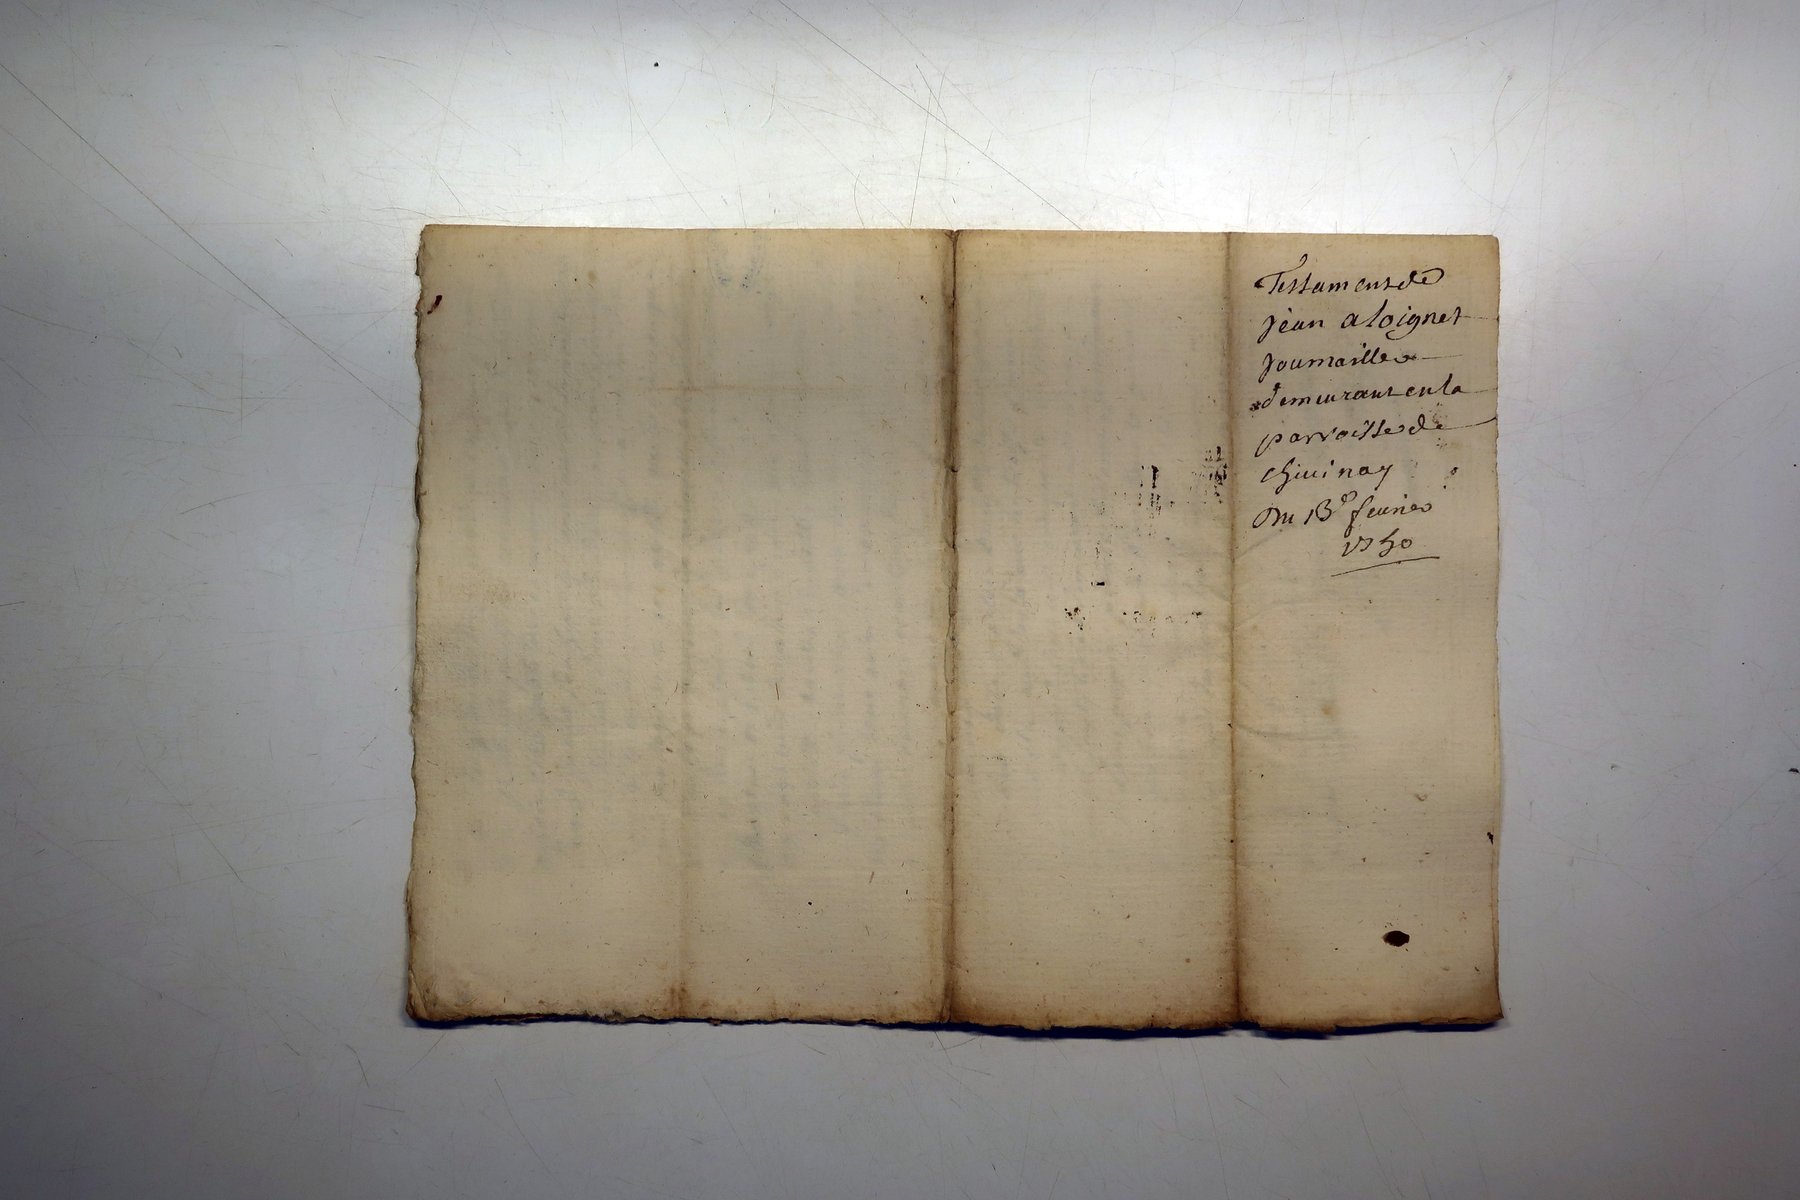 Testament de
jean aloignet
journaillier
demeurant en la
parroisse de
chivinay
Du 13e fevrier
1750